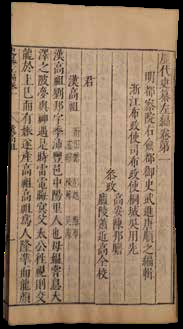 歷代史纂左編卷第一
明都察院右僉都御史武進唐順之編輯
浙江布政使司布政使桐城吳用先
參政
高安陳邦瞻
廬陵蕭近高仝校
君
漢高祖
漢高祖劉邦字季沛豐邑中陽里人也母媼嘗息大
澤之陂夢與神遇是時雷電晦冥父太公往視則見交
龍於上已而有娠遂產高祖高祖為人隆準而龍顏